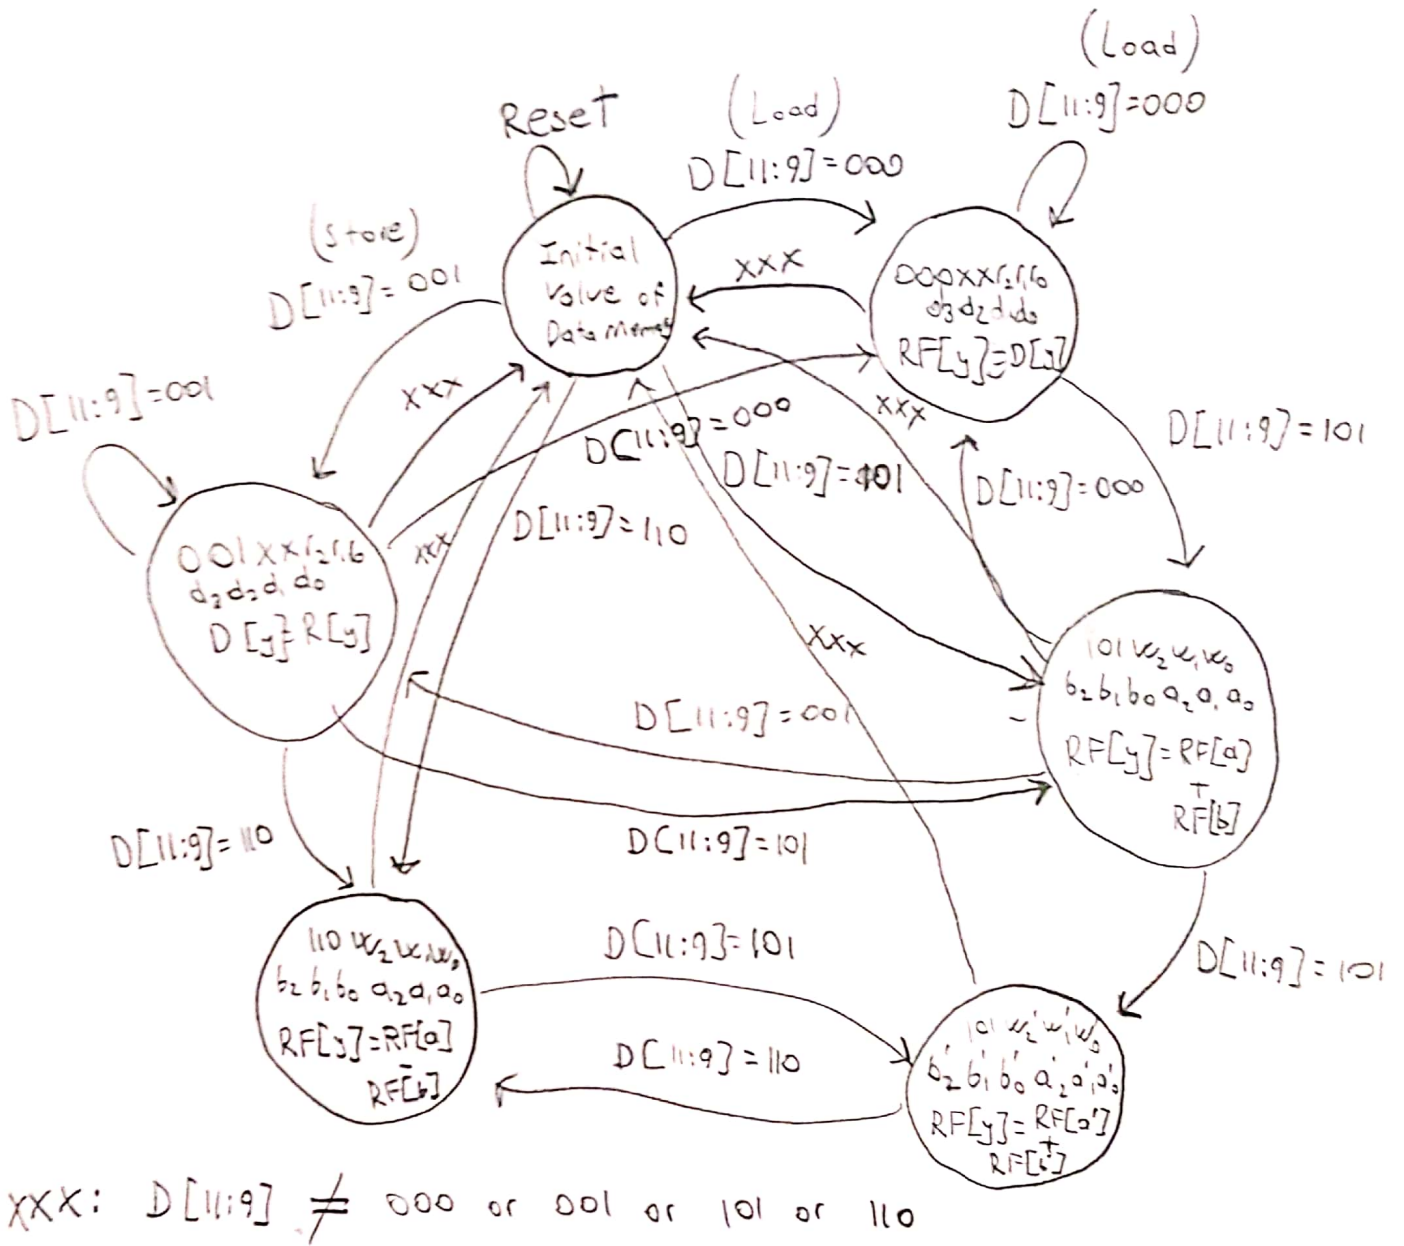 (Load)
D[11:9]=000
Reset
(Load)
D[11:9]=000
(Store)
D[11:9]=001
Initial
Value of
Data Memory
XXX
000XXr2r1r0
d3d2d1d0
RF[y]=D[y]
D[11:9]=001
XXX
XXX
D[11:9]=000
D[11:9]=101
D[11:9]=101
D[11:9]=000
D[11:9]=110
XXX
001XXr2r1r0
d3d2d1d0
D[y]=R[y]
XXX
101w2w1w0
b2b1b0a2a1a0
RF[y]=RF[a]
+
RF[b]
D[11:9]=001
D[11:9]=101
D[11:9]=110
110w2w1w0
b2b1b0a2a1a0
RF[y]=RF[a]
-
RF[b]
D[11:9]=101
D[11:9]=110
D[11:9]=101
101w2'w1'w0'
b2'b1'b0'a2'a1'a0'
RF[y]=RF[a']
+
RF[b']
XXX: D[11:9] ≠ 000 or 001 or 101 or 110